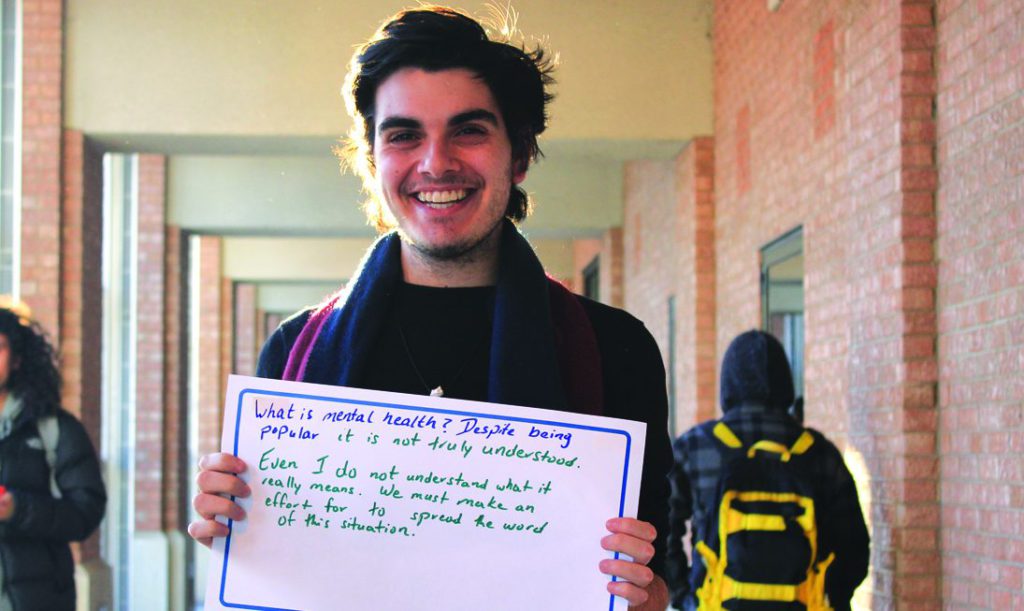 What is mental health? Despite being
popular it is not truly understood.
Even I do not understand what it
really means. We must make an
effort for to spread the word
of this situation.